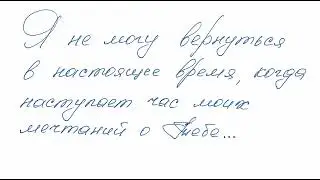 Я не могу вернуться
в настоящее время, когда
наступает час моих
мечтаний о Тебе...